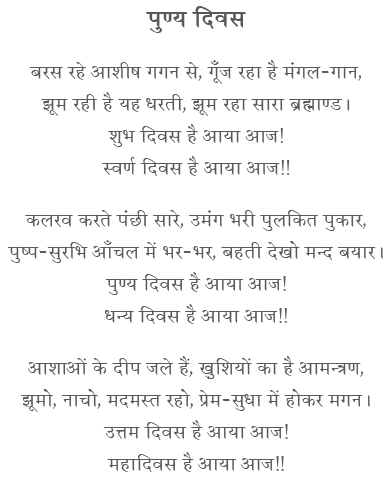 पुण्य दिवस
बरस रहे आशीष गगन से, गूँज रहा है मंगल-गान,
झूम रही है यह धरती, झूम रहा सारा ब्रह्माण्ड।
शुभ दिवस है आया आज!
स्वर्ण दिवस है आया आज!!
कलरव करते पंछी सारे, उमंग भरी पुलकित पुकार,
पुष्प-सुरभि आँचल में भर-भर, बहती देखो मन्द बयार।
पुण्य दिवस है आया आज!
धन्य दिवस है आया आज!!
आशाओं के दीप जले हैं, खुशियों का है आमन्त्रण,
झूमो, नाचो, मदमस्त रहो, प्रेम-सुधा में होकर मगन।
उत्तम दिवस है आया आज!
महादिवस है आया आज!!